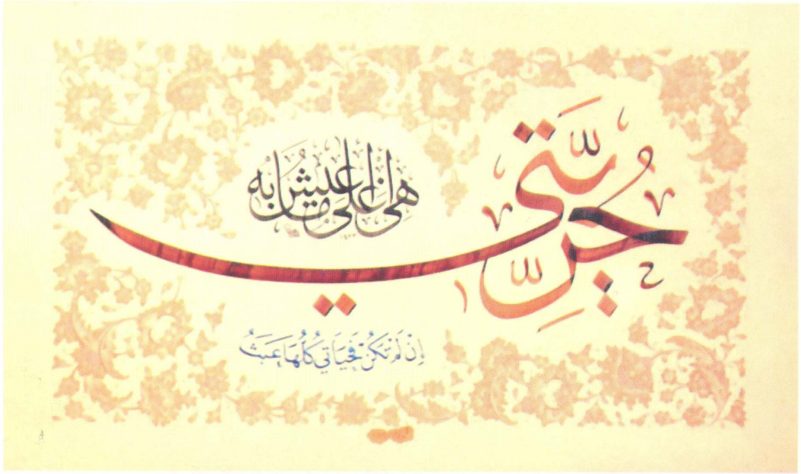 حُرِّيَّتي
هِيَ أغلى مَا أعيشُ بِهِ
إِنْ لَمْ تَكُنْ فَحَيَاتي كُلُّهَا عَبَثُ